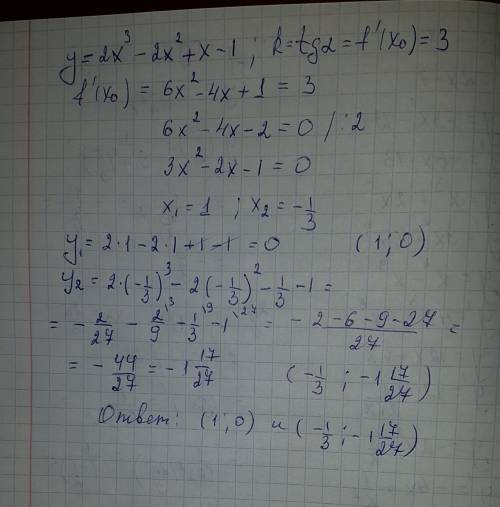 y=2x³-2x²+x-1; k=tgα=f'(x₀)=3
f'(x₀) = 6x²-4x+1 = 3
6x²-4x-2=0 /:2
3x²-2x-1=0
x₁=1 ; x₂=-1/3
y₁=2·1-2·1+1-1 =0 (1;0)
y₂=2·(-1/3)³-2(-1/3)²-1/3-1=
= -2/27 - 2/9\3 - 1/3\9 - 1\27 = -2-6-9-27/27 =
= -44/27 = -1 17/27 (-1/3 ; -1 17/27)
Ответ: (1;0) и (-1/3; -1 17/27)